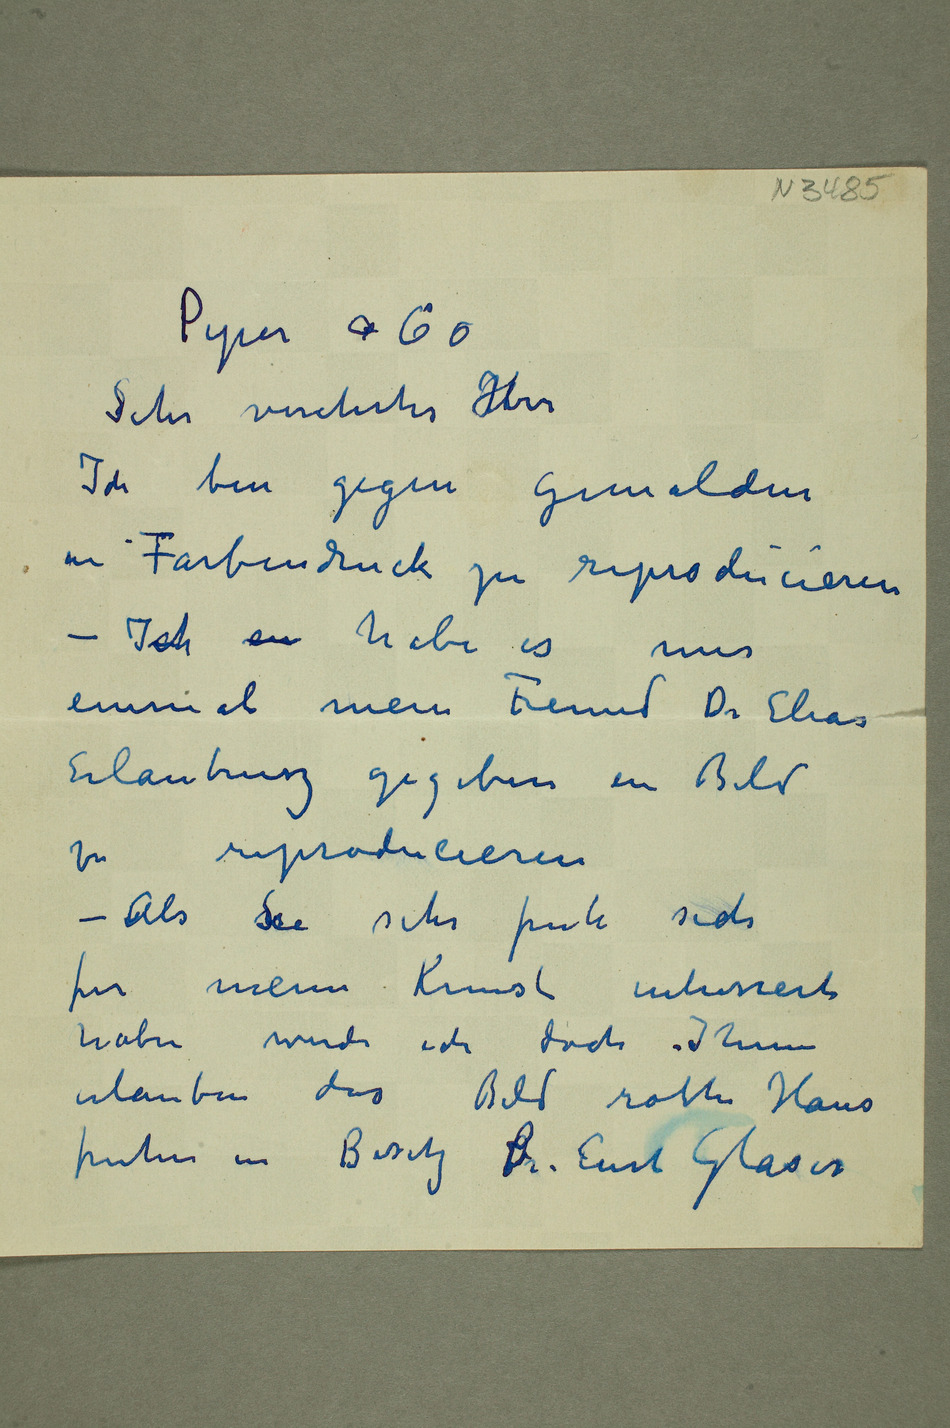 N 3485
Pyper & Co
Sehr verehrter Herr
Ich bin gegen Gemälden
in Farbendruck zu reproducieren
– Ich habe es nur
einmal mein Freund Dr Elias
Erlaubnisz gegeben ein Bild
zu reproducieren
– Als Sie sehr früh sich
fur meine Kunst intressiert
haben wurde ich doch Ihnen
erlauben das Bild rothe Haus
fruher in Besitz Dr. Curt Glaser